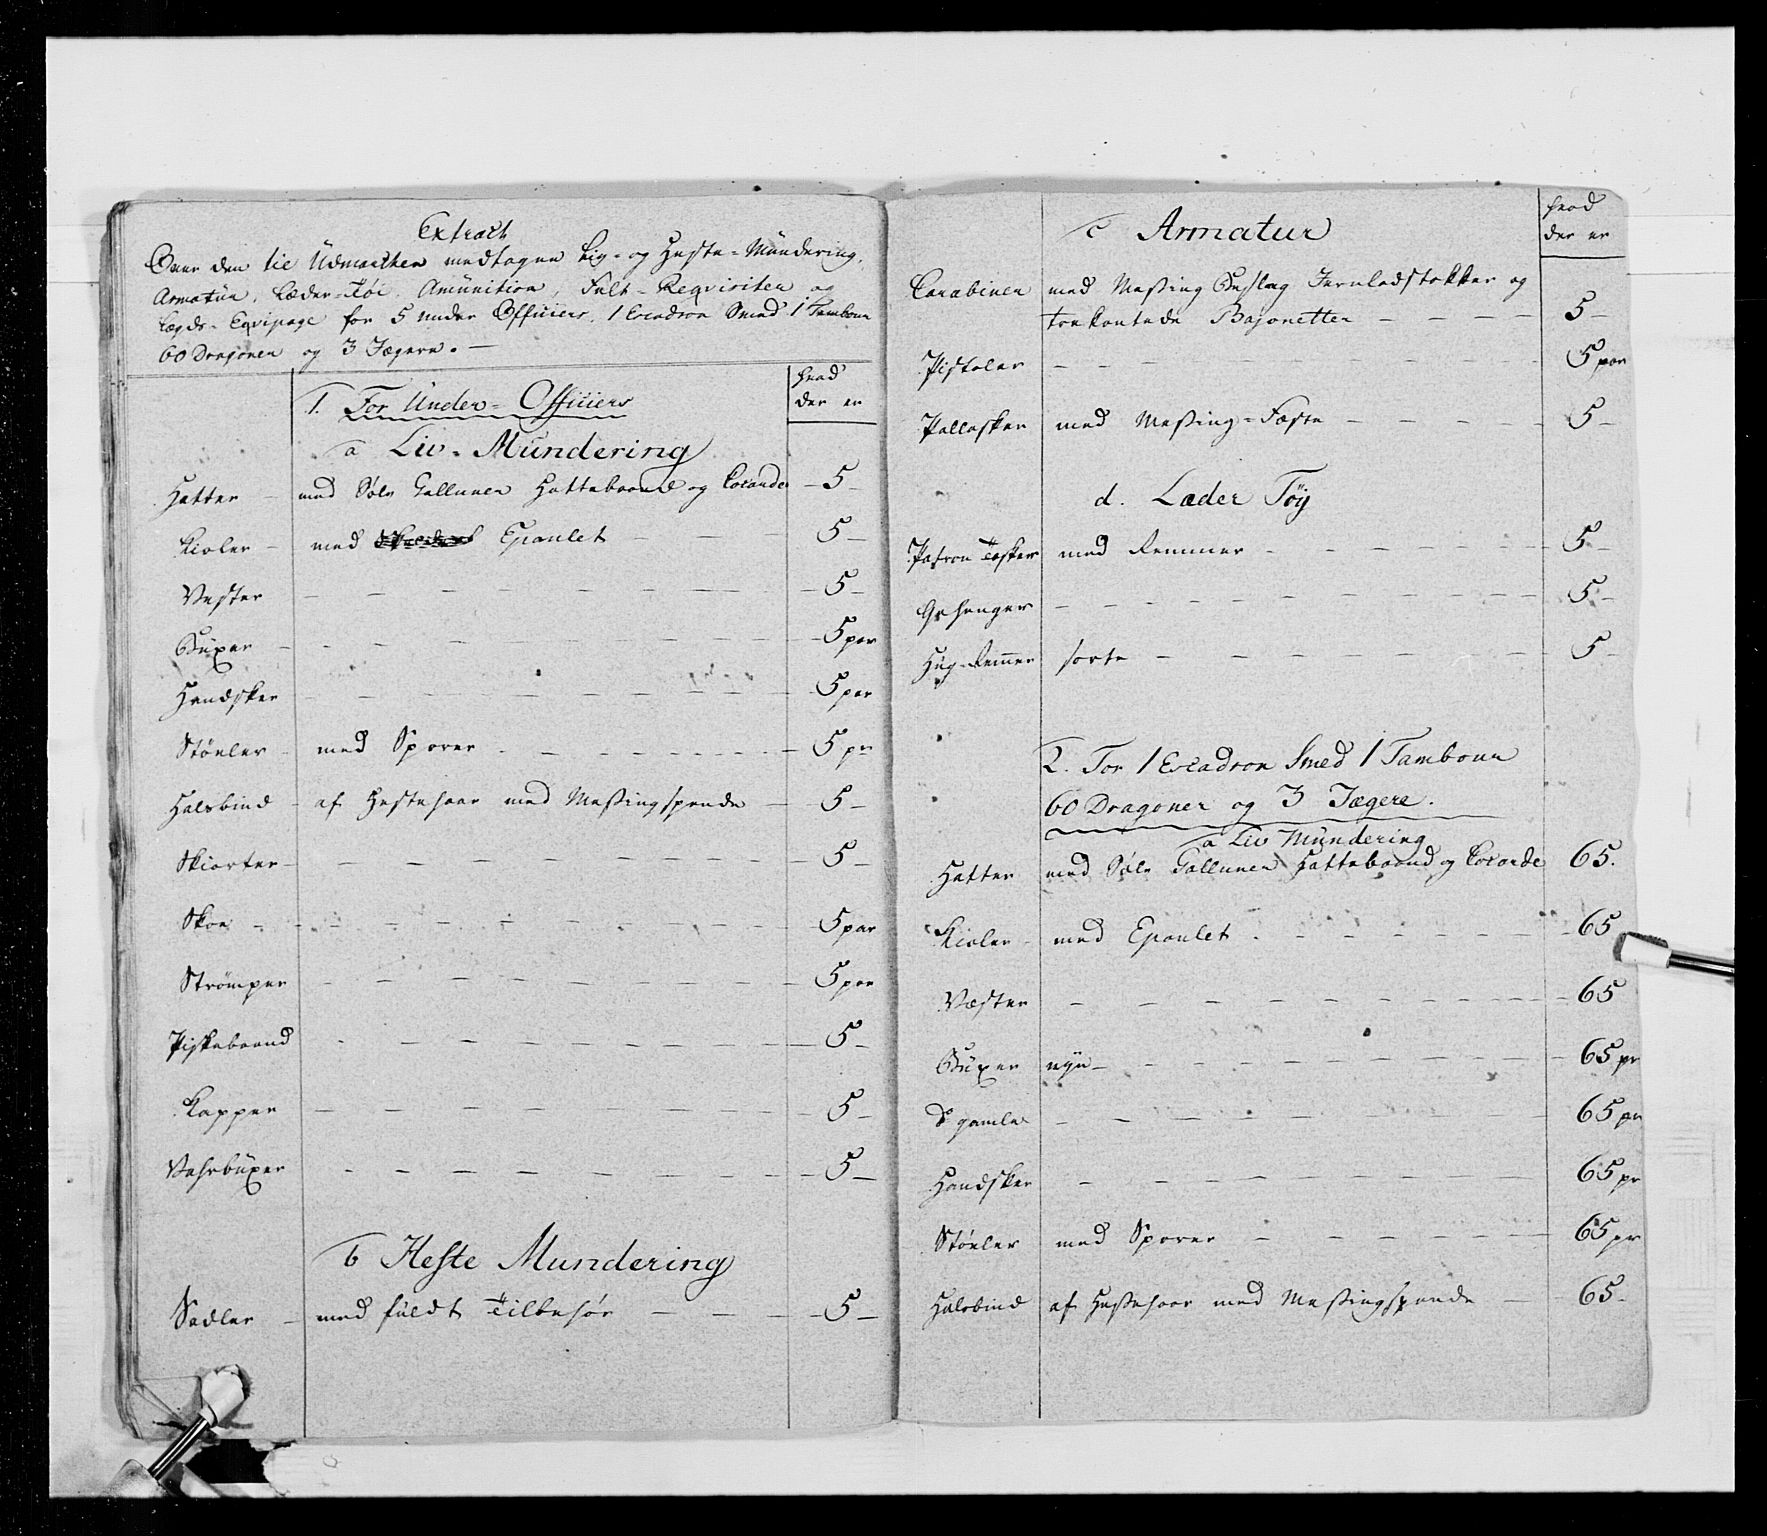 Extract
Over den til Udmarchen medtagen Liv- og Heste-Mundering,
Armatur, Læder-Tøi, Amunition, Felt-Reqvisiter og
Leyr-Eqvipage for 5 under Officiers, 1 Escadron Smed 1 Tambour
60 Dragoner og 3 Jægere. —
hvad
der er
1. For Under-Officiers
a Liv-Mundering
Hatter – med Sølv Galluner Hattebaand og Cocarde – 5 –
Kioler – med Epaulet – – – 5 –
Vester – – – – – – – – 5 –
Buxer – – – – – – – – 5 par
Handsker – – – – – – – – 5 par
Støvler – med Sporer – – – – – – 5 pr
Halsbind – af Hestehaar med Messingspende – 5 –
Skiorter – – – – – – – – 5 –
Skoe – – – – – – – – 5 par
Strømper – – – – – – – 5 par
Piskebaand – – – – – – – – 5 –
Kapper – – – – – – – – 5 –
Buxer – – – – – – – – 5 –
b Heste Mundering
Sadler – med fuldt Tilbehør – – – 5 –
hvad
der er
c Armatur
Carabiner med Messing Beslag Jernladstokker og
trekantede Bajonetter – – – – 5 –
Pistoler – – – – – – – – 5 par
Pallasker med Messing-Fæste – – – – 5 –
d. Læder Töy
Patron Tasker med Remmer – – – – – – 5 –
Gehenger – – – – – – – – 5 –
Remmer sorte – – – – – – – 5 –
2. For 1 Escadron Smed 1 Tambour
60 Dragoner og 3 Jægere.
a Liv Mundering
Hatter med Sølv Galluner Hattebaand og Cocarde 65.
Kioler – med Epaulet. – – – – – – 65
Væster – – – – – – – – 65
Buxer nye – – – – – – – – 65 pr
Do gamle – – – – – – – 65 pr
Handsker – – – – – – – 65 pr
Støvler med Sporer – – – – – 65 pr
Halsbind af Hestehaar med Messingspende – 65 –